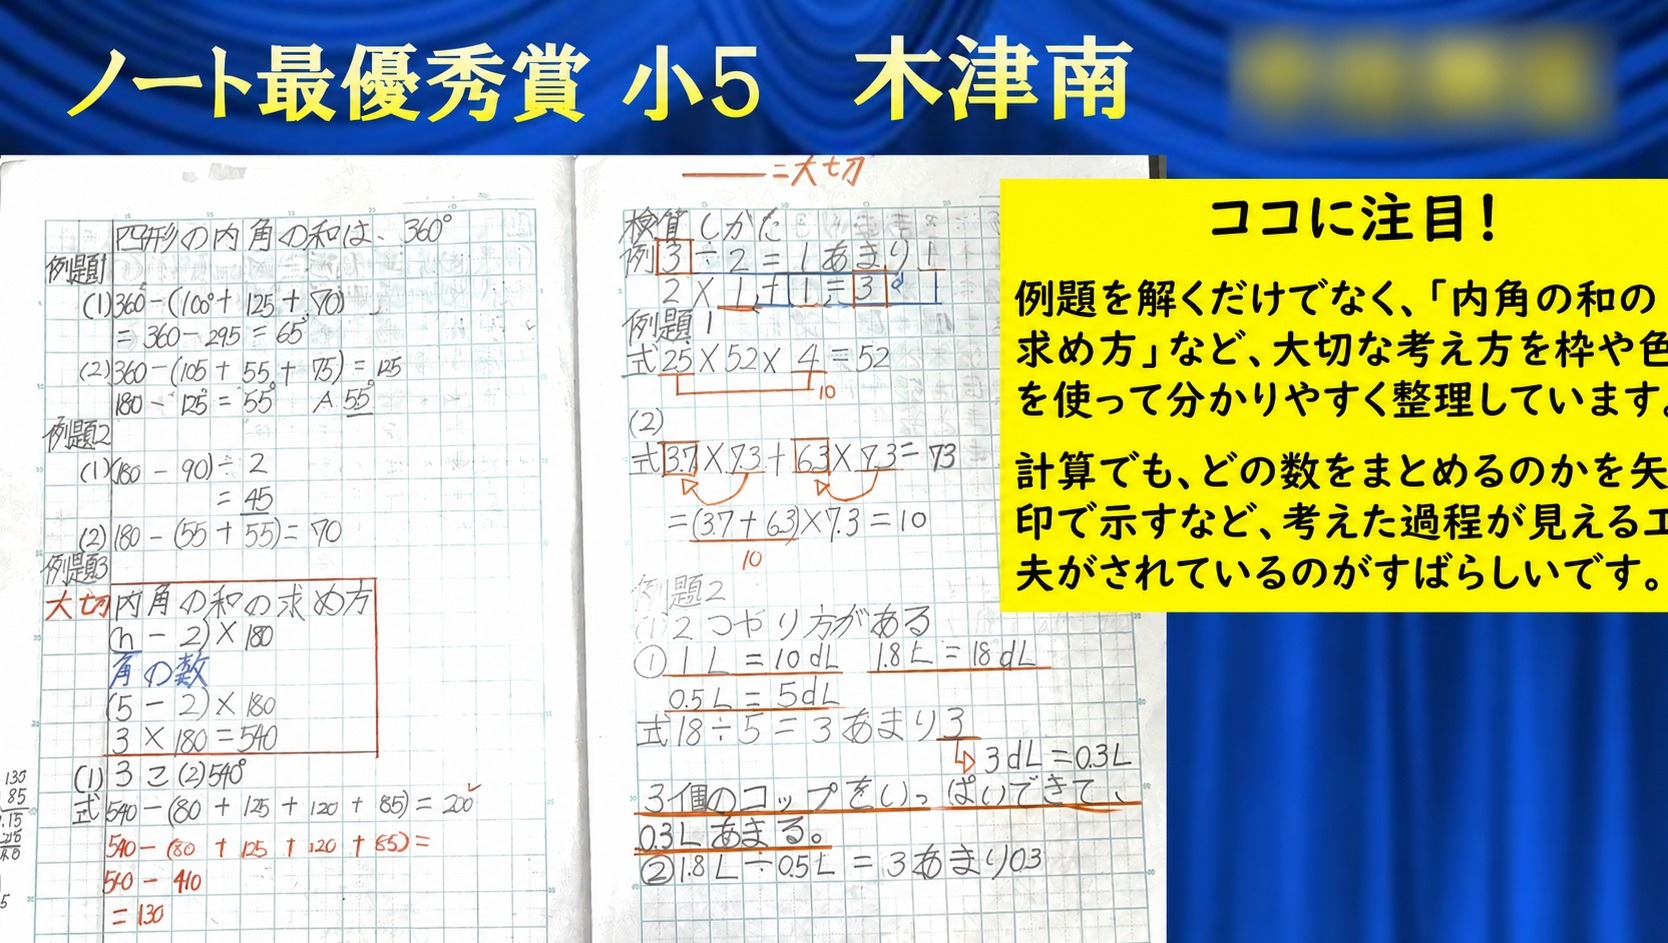 ノート最優秀賞 小5 木津南
四形の内角の和は、360°
例題1
(1)360°-(100°+125+70)
=360-295=65°
(2)360-(105+55+75)=125
180-125°=55° A.55°
例題2
(1)(180-90)÷2
=45
(2)180-(55+55)=70
例題3
大切 内角の和の求め方
(n-2)×180
角の数
(5-2)×180
3×180=540
(1)3こ(2)540°
式540-(80+125+120+85)=200
540-(80+125+120+85)=
540-410
=130
135
85
=大切
検算しかた
例3÷2=1あまり1
2×1+1=3
例題1
式25×52×4=52
10
(2)
式3.7×7.3+6.3×7.3=73
=(3.7+6.3)×7.3=10
10
例題2
(1)2つやり方がある
①1L=10dL 1.8L=18dL
0.5L=5dL
式18÷5=3あまり3
3dL=0.3L
3個のコップをいっぱいできて、
0.3Lあまる。
②1.8L÷0.5L=3あまり0.3
ココに注目!
例題を解くだけでなく、「内角の和の
求め方」など、大切な考え方を枠や色
を使って分かりやすく整理しています。
計算でも、どの数をまとめるのかを矢
印で示すなど、考えた過程が見える工
夫がされているのがすばらしいです。